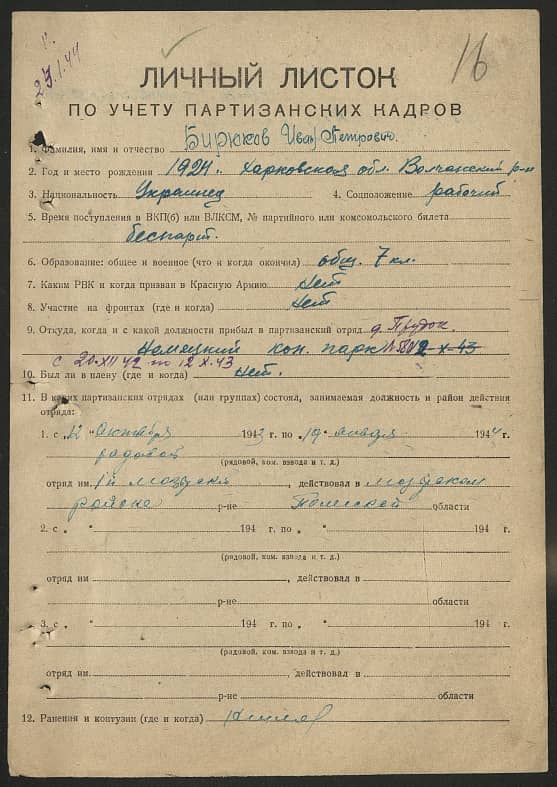 23.1.44
16
ЛИЧНЫЙ ЛИСТОК
ПО УЧЕТУ ПАРТИЗАНСКИХ КАДРОВ
1. Фамилия, имя и отчество Бирюков Иван Петрович
2. Год и место рождения 1924 г. Харьковская обл. Волчанский р-н
3. Национальность Украинец 4. Соцположение рабочий
5. Время поступления в ВКП(б) или ВЛКСМ, № партийного или комсомольского билета
беспарт.
6. Образование: общее и военное (что и когда окончил) общ. 7 кл.
7. Каким РВК и когда призван в Красную Армию Нет
8. Участие на фронтах (где и когда) Нет
9. Откуда, когда и с какой должности прибыл в партизанский отряд д. Прудок.
Немецкий кон. парк
с 20.XII 42 по 12 X.43
10. Был ли в плену (где и когда) нет.
11. В каких партизанских отрядах (или группах) состоял, занимаемая должность и район действия
отряда:
1. с „12 “ Октября 1943 г. по „19 “ января 1944 г.
рядовой
(рядовой, ком. взвода и т. д.)
отряд им. 1й Мозырский, действовал в Мозырском
районе р-не Полесской области
2. с „ “ 194 г. по „ “ 194 г.
(рядовой, ком. взвода и т. д.)
отряд им. , действовал в
р-не области
3. с „ “ 194 г. по „ “ 194 г.
(рядовой, ком. взвода и т. д.)
отряд им. , действовал в
р-не области
12. Ранения и контузии (где и когда)